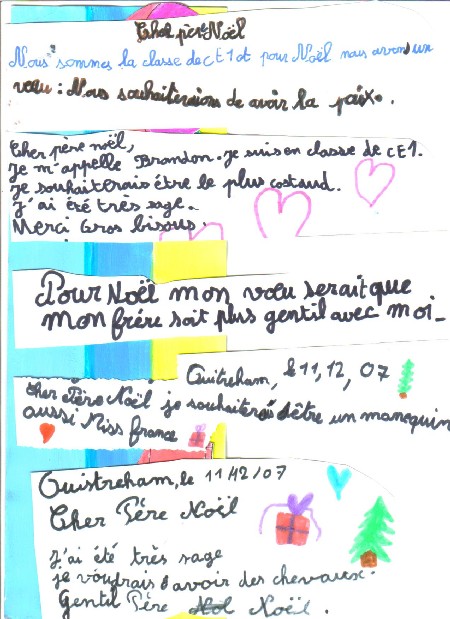 Cher père Noël
Nous sommes la classe de CE1 et pour Noël nous avons un
vœu : Nous souhaiterions de avoir la paix.
Cher père noël,
Je m'appelle Brandon. Je suis en classe de CE1.
Je souhaiterais être le plus costaud.
J'ai été très sage.
Merci Gros bisous.
Pour Noël mon vœu serait que
mon frére soit plus gentil avec moi_
Ouitreham, le 11, 12, 07
Cher Père Noël je souhaiterais d'être un manequin
aussi Miss france
Ouistreham, le 11/12/07
Cher Pére Noël
J'ai été très sage
je voudrais avoir des chevaux.
Gentil Père Noël.